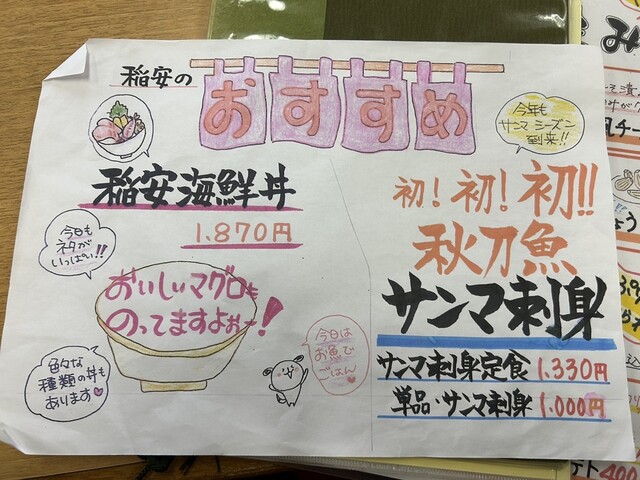 稲安の
おすすめ
今年も
サンマシーズン
到来!!
稲安海鮮丼
1.870円
今日も
ネタが
いっぱい!!
おいしいマグロも
のってますよぉー!
色々な
種類の丼も
あります
今日は
お魚で
ごはん
初!初!初!!
秋刀魚
サンマ刺身
サンマ刺身定食 1.330円
単品・サンマ刺身 1.000円
400